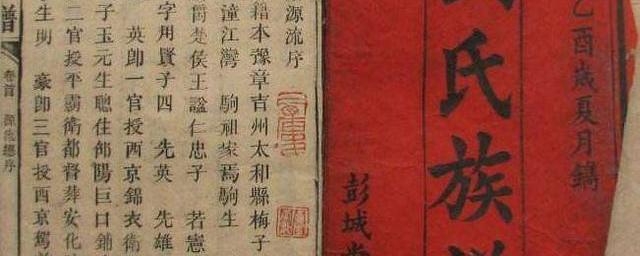 乙酉歲夏月鐫
氏族
彭城堂
源流序
籍本豫章吉州太和縣梅子
潼江灣 駒祖家焉駒生
爵楚侯王諡仁忠子 若憲
字用賢子四 先英 先雄
英卽一官授西京錦衣衛
子玉元生聰住邵陽巨口鋪
二官授平霸衛都督葬安化
生明 豪卽三官授西京駕
譜
卷首 源流總序